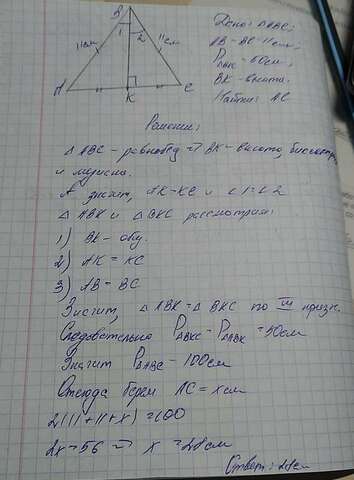 B
1 2
11см
11см
A
K
C
Дано: △ABC;
AB = BC = 11см;
BK - высота.
Найти: AC
Решение:
△ ABC - равнобед => BK - высота, биссектр.
и медиана.
А значит, AK = KC и ∠1 = ∠2
△ ABK и △ BKC рассмотрим:
1) BK - общ.
2) AK = KC
3) AB = BC
Значит, △ ABK = △ BKC по III призн.
Следовательно P△BKC = P△ABK = 50см
Значит P△ABC = 100см
Отсюда берем AC = x см
2(11+11+x)=100
2x = 56 => x = 28см
Ответ: 28см